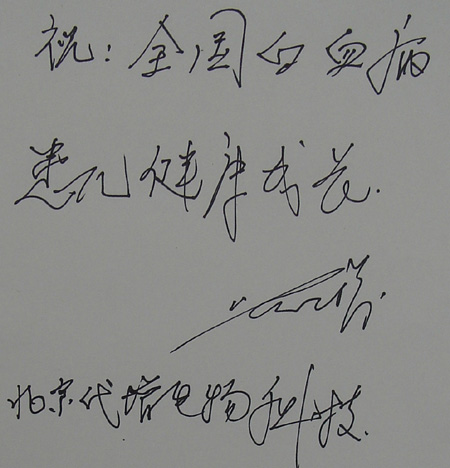 祝：全国白血病
患儿健康成长.
北京代培生物科技.